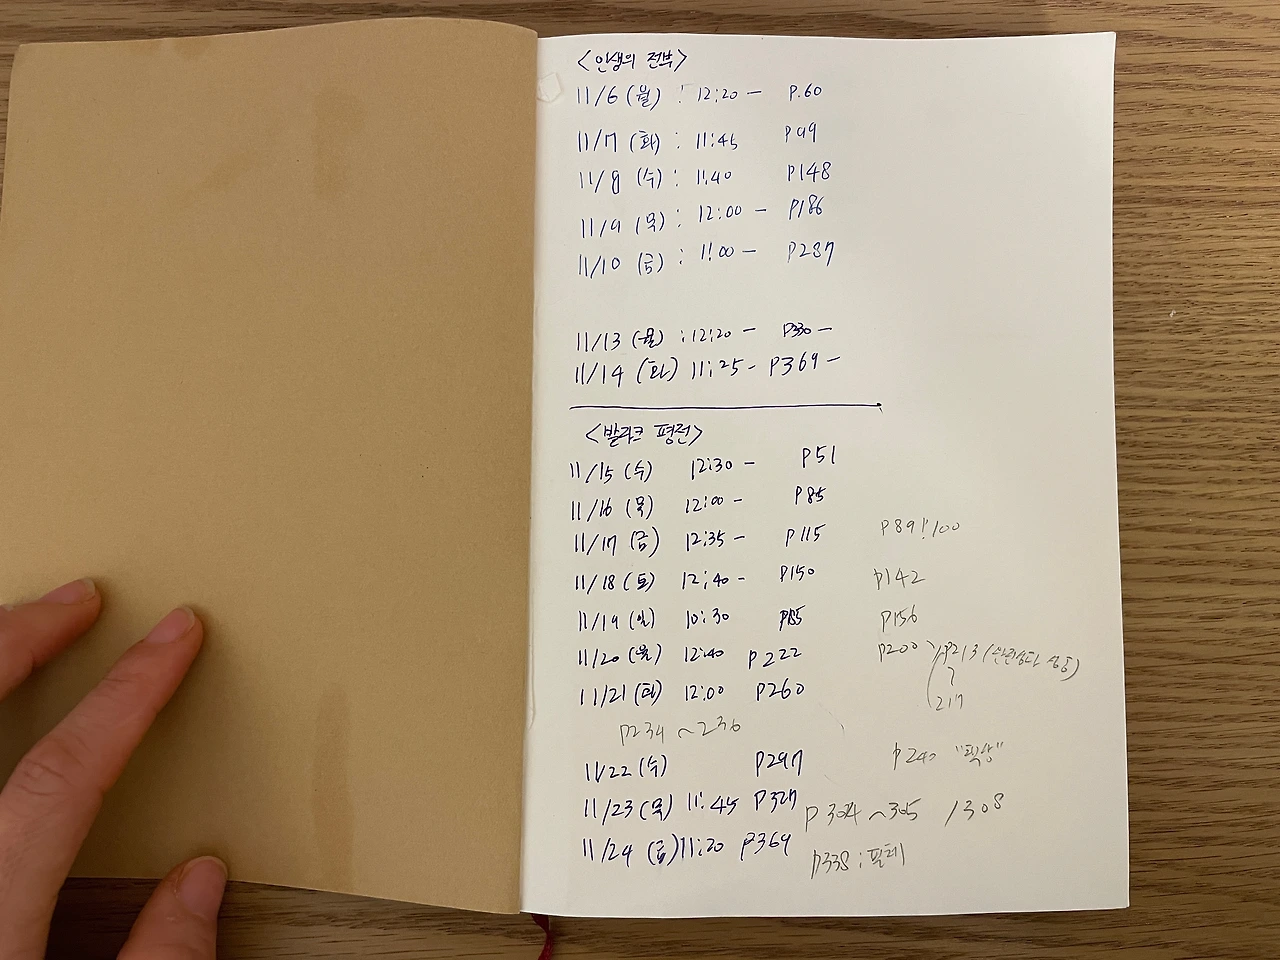 <인생의 전부>
11/6 (월) : 12:20 - P.60
11/7 (화) : 11:45 P99
11/8 (수) : 11:40 P148
11/9 (목) : 12:00 - P186
11/10 (금) : 11:00 - P287
11/13 (월) : 12:20 - P330 -
11/14 (화) 11:25 - P369 -
<발자크 평전>
11/15 (수) 12:30 - P51
11/16 (목) 12:00 - P85
11/17 (금) 12:35 - P115 P89 100
11/18 (토) 12:40 - P150 P142
11/19 (일) 10:30 P185 P156
11/20 (월) 12:40 P222 P200 P213
217
11/21 (화) 12:00 P260
P234 ~ 236
11/22 (수) P297 P240
11/23 (목) 11:45 P327 P304 ~ 305 / 308
11/24 (금) 11:20 P369 P338 :